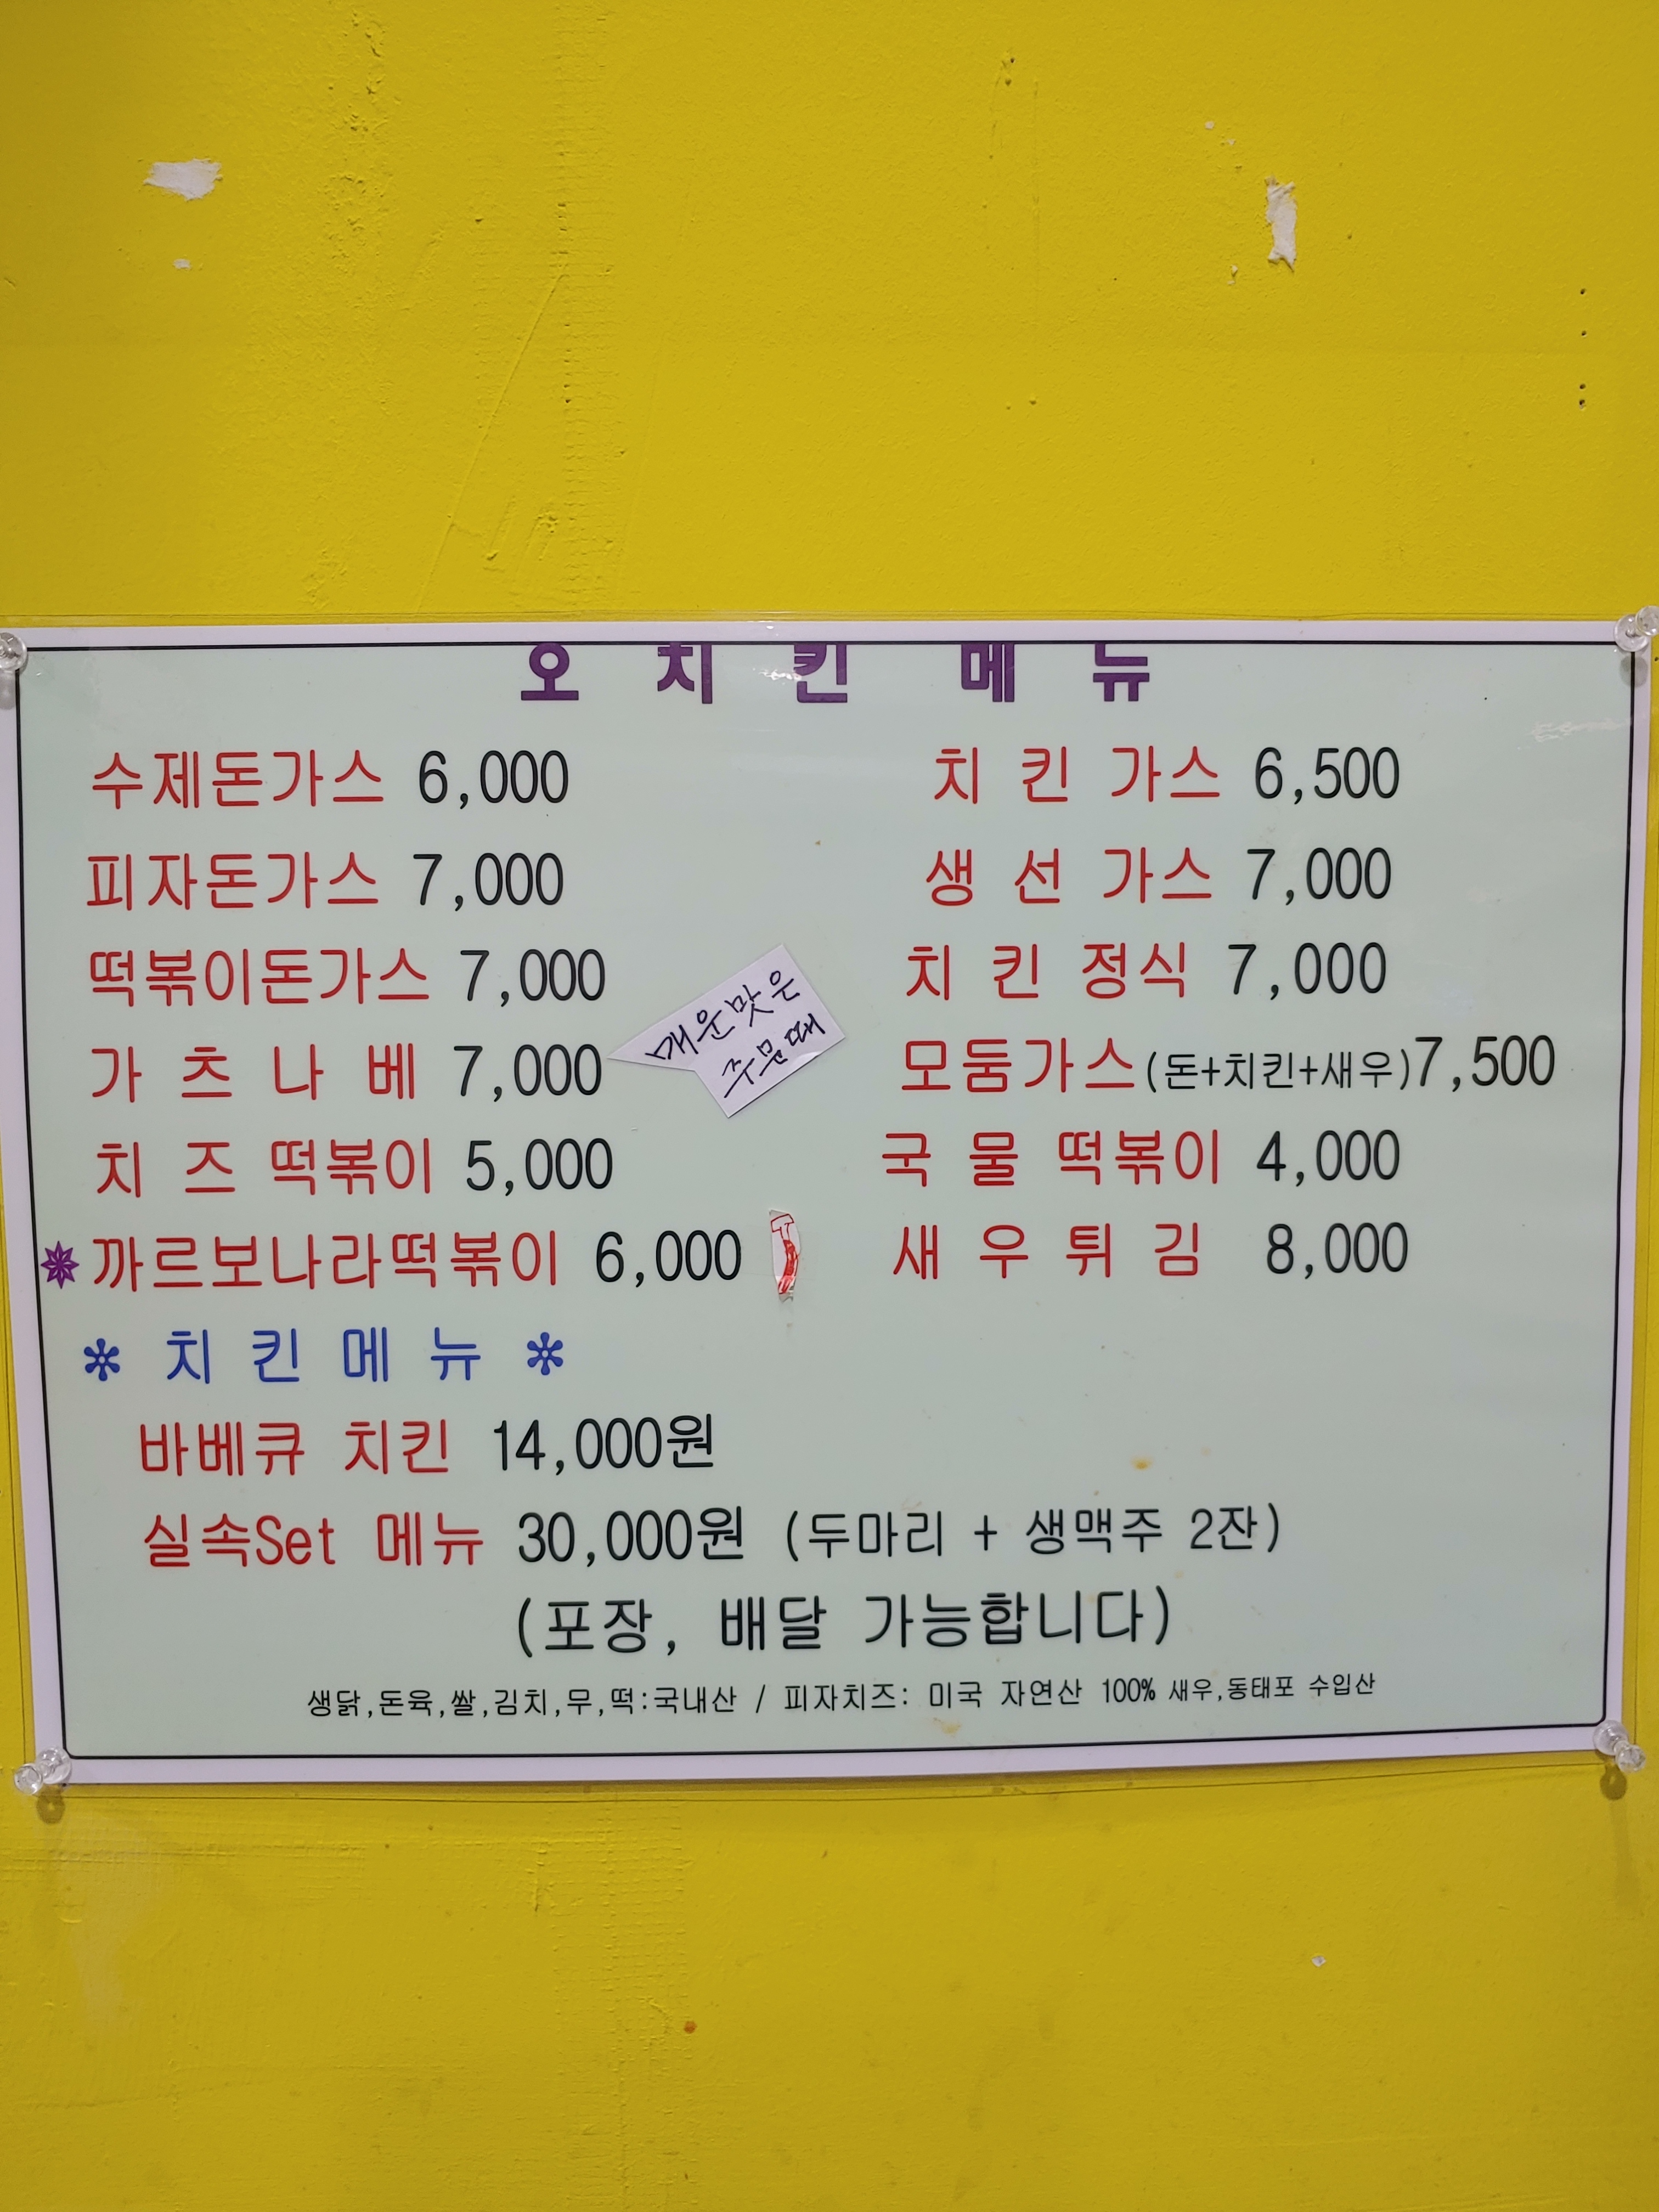 오 치 킨 메 뉴
수제돈가스 6,000
치 킨 가스 6,500
피자돈가스 7,000
생 선 가스 7,000
떡볶이돈가스 7,000
치 킨 정식 7,000
가 츠 나 베 7,000
매운맛은
주문때
모둠가스(돈+치킨+새우)7,500
치 즈 떡볶이 5,000
국 물 떡볶이 4,000
까르보나라떡볶이 6,000
새 우 튀 김 8,000
※ 치 킨 메 뉴 ※
바베큐 치킨 14,000원
실속Set 메뉴 30,000원 (두마리 + 생맥주 2잔)
(포장, 배달 가능합니다)
생닭,돈육,쌀,김치,무,떡:국내산 / 피자치즈: 미국 자연산 100% 새우,동태포 수입산